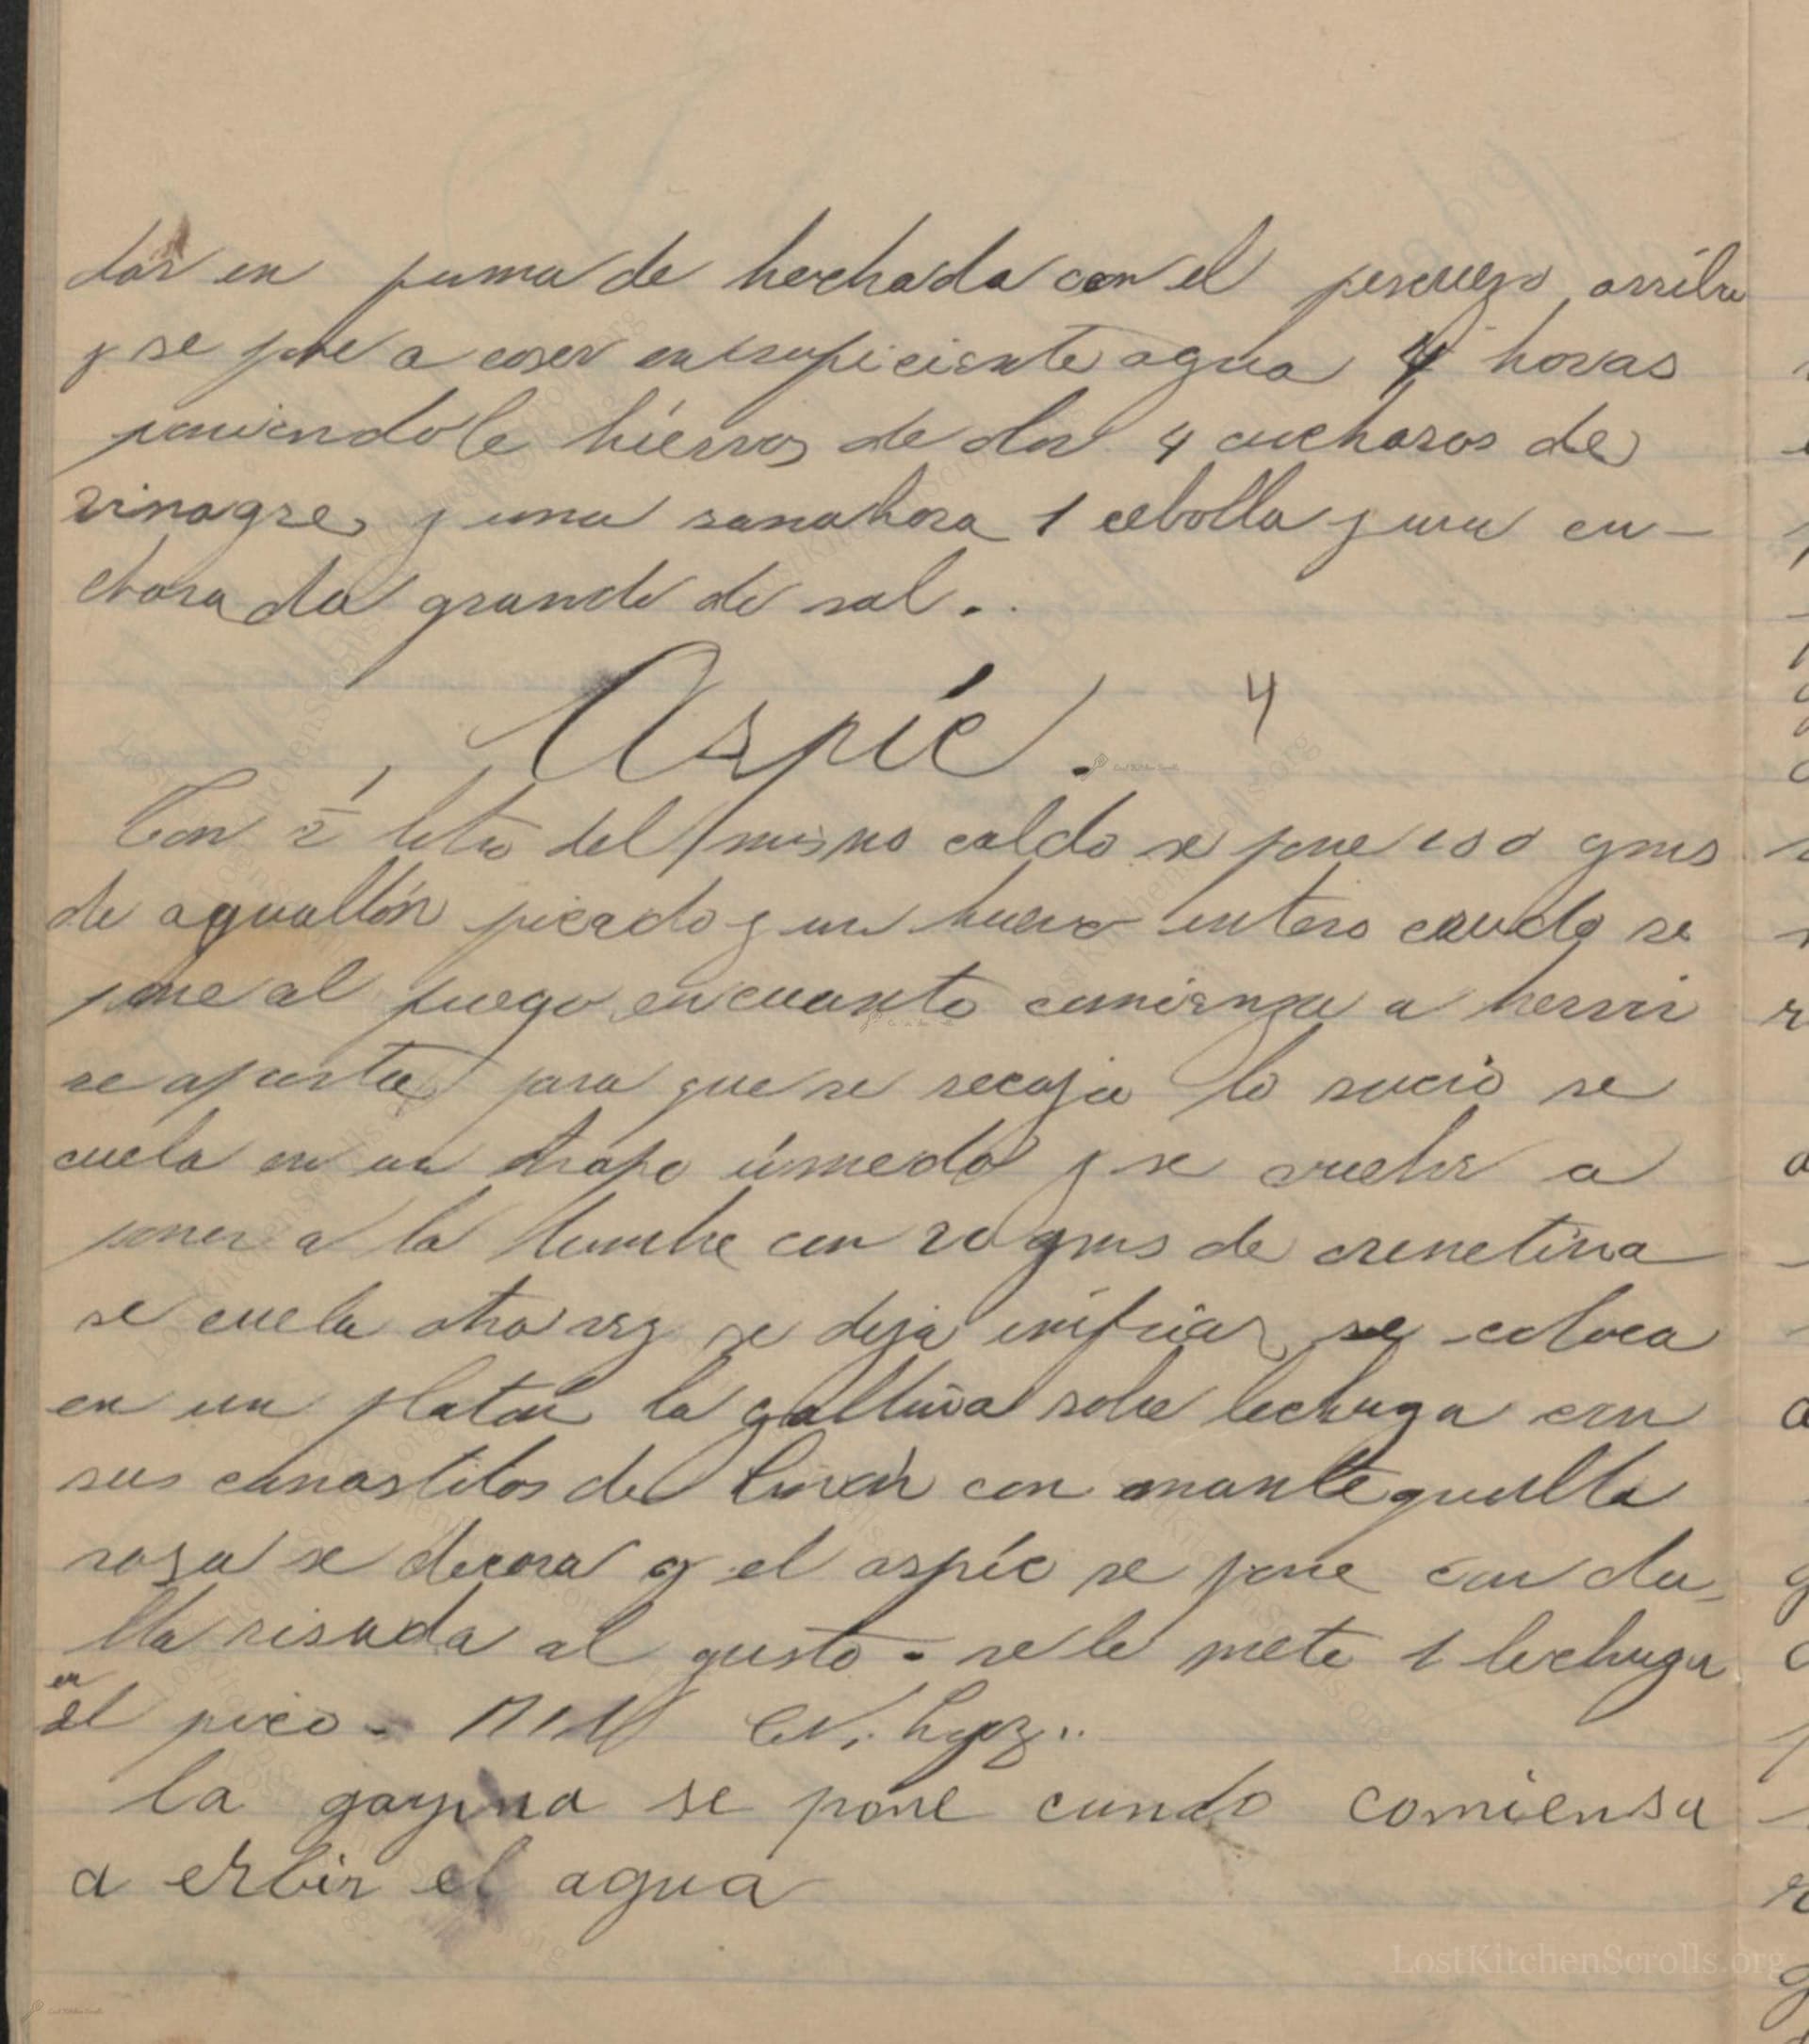 dor en forma de hechada con el pescuezo arriba
y se pone a coser en suficiente agua 4 horas
poniendole hierros de olor 4 cucharas de
vinagre y una sanahora 1 cebolla y una cu-
charada grande de sal.
Aspíc. 4
Con 1/2 litro del mismo caldo se pone 150 gms
de aguallón picado y un huevo entero crudo se
pone al fuego en cuanto comienza a hervir
se aparta para que se recoja lo sucio se
cuela en un trapo úmedo y se vuelve a
poner a la lumbre con 20 gms de grenetina
se cuela otra vez se deja enifriar se coloca
en un platón la gallina sobre lechuga con
sus canastitos de limón con mantequilla
rosa se decora y el aspíc se pone con du-
lla risada al gusto. se le mete 1 lechuga
en
el pico.
la gayina se pone cundo comiensa
a erbir el agua
LostKitchenScrolls.org